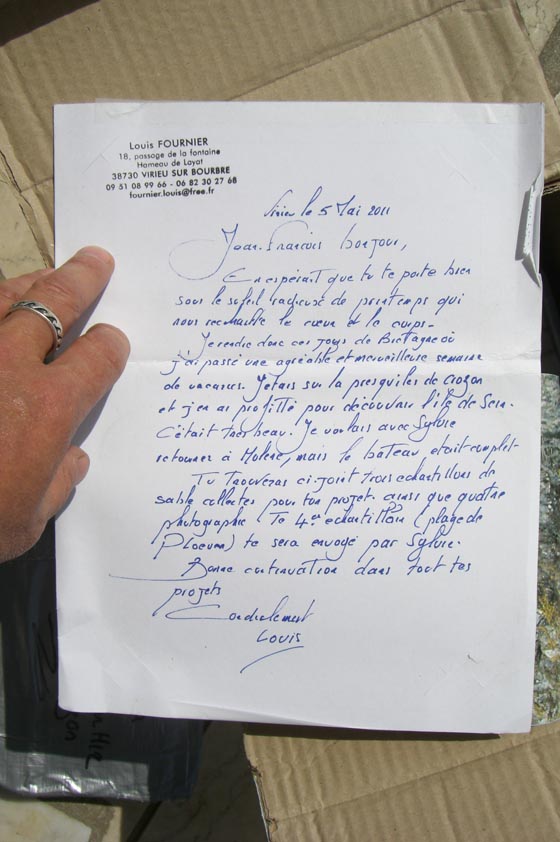 Louis FOURNIER
18, passage de la fontaine
Hameau de Layat
38730 VIRIEU SUR BOURBRE
09 51 08 99 66 - 06 82 30 27 68
fournier.louis@free.fr
le 5 Mai 2011
Jean-François bonjour,
En espérait que tu te porte bien
sous le soleil radieuse de printemps qui
nous rechauffe le cœur et le corps-
donc ces jours de Bretagne où
j'ai passé une agréable et merveilleuse semaine
de vacances. J'etais sur la presqu'iles de crozon
et j'en ai profitté pour découvrir l'île de Sein.
C'était très beau. Je voulais avec Sylvie
retourner à Molène, mais le bateau etait complet-
Tu trouveras ci-joint trois echantillons de
sable collectes pour ton projet. ainsi que quatre
photographie Te 4er echantillon (plage de
Ploeven) te sera envoyé par Sylvie-
Bonne continuation dans tout tes
projets
Cordialement
Louis